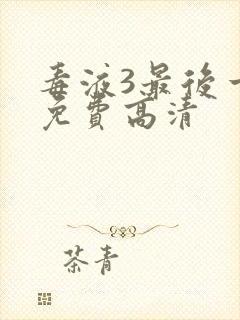 毒液3最後一
免費高清
茶青